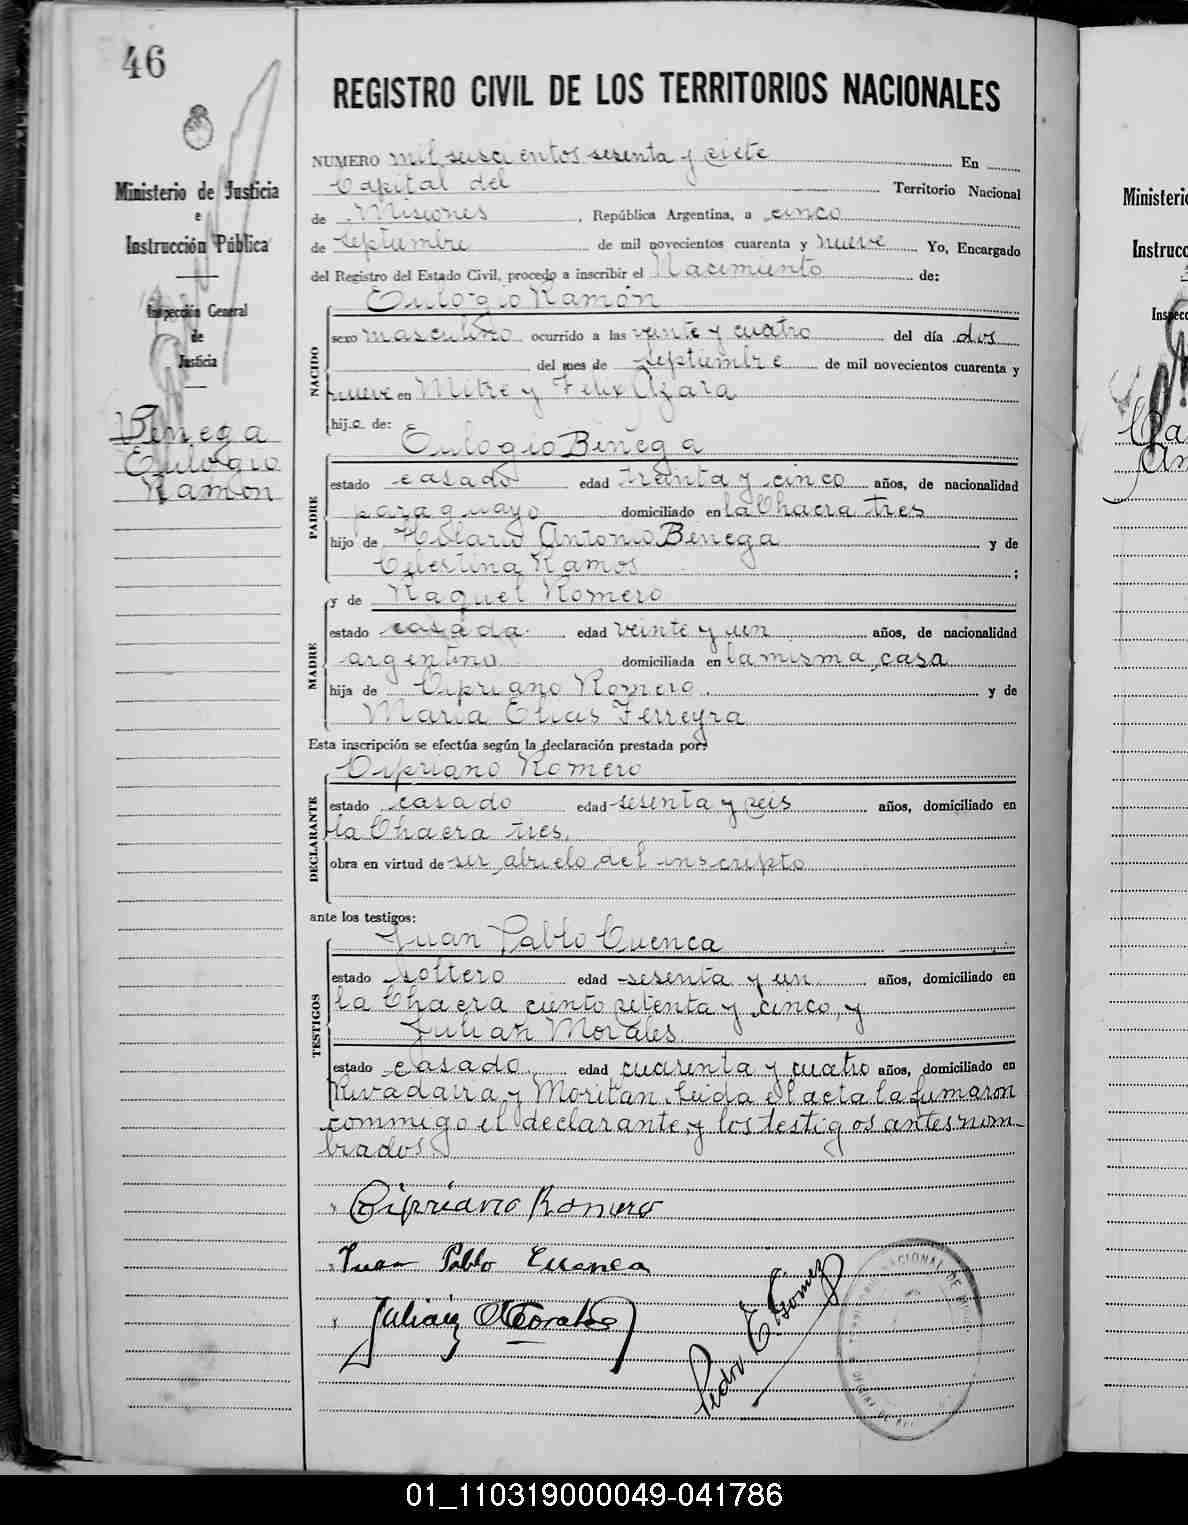 46
REGISTRO CIVIL DE LOS TERRITORIOS NACIONALES
Ministerio de Justicia
e
Instrucción Pública
Inspección General
de
Justicia
Benega
Eulogio
Ramón
NUMERO mil seiscientos sesenta y siete En
Capital del Territorio Nacional
de Misiones, República Argentina, a cinco
de septiembre de mil novecientos cuarenta y nueve Yo, Encargado
del Registro del Estado Civil, procedo a inscribir el Nacimiento de:
NACIDO
Eulogio Ramón
sexo masculino ocurrido a las veinte y cuatro del día dos
del mes de septiembre de mil novecientos cuarenta y
nueve en Mitre y Felix Azara
hijo de:
PADRE
Eulogio Benega
estado casado edad treinta y cinco años, de nacionalidad
paraguayo domiciliado en la Chacra tres
hijo de Antonio Benega y de
Celestina Ramos;
MADRE
y de Raquel Romero
estado casada edad veinte y un años, de nacionalidad
argentina domiciliada en la misma casa
hija de Cipriano Romero y de
Maria Elias Ferreyra
Esta inscripción se efectúa según la declaración prestada por:
DECLARANTE
Cipriano Romero
estado casado edad sesenta y seis años, domiciliado en
la Chacra tres.
obra en virtud de ser abuelo del inscripto
ante los testigos:
TESTIGOS
Juan Pablo Cuenca
estado soltero edad sesenta y un años, domiciliado en
la Chacra ciento setenta y cinco, y
Julian Morales
estado casado edad cuarenta y cuatro años, domiciliado en
Rivadavia y Moritan. Leida el acta la firmaron
conmigo el declarante y los testigos antes nom-
brados
Cipriano Romero
Juan Pablo Cuenca
Julián Morales
Pedro E. Gomez
01_110319000049-041786